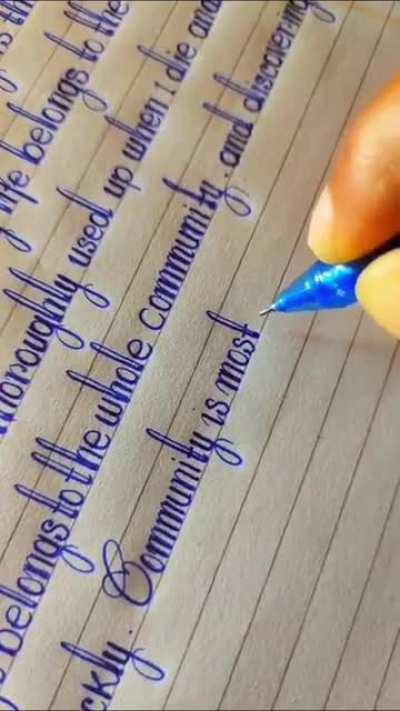 life belongs to the
horoughly used up when i die and
belongs to the whole community and discovering
ckly. Community is most